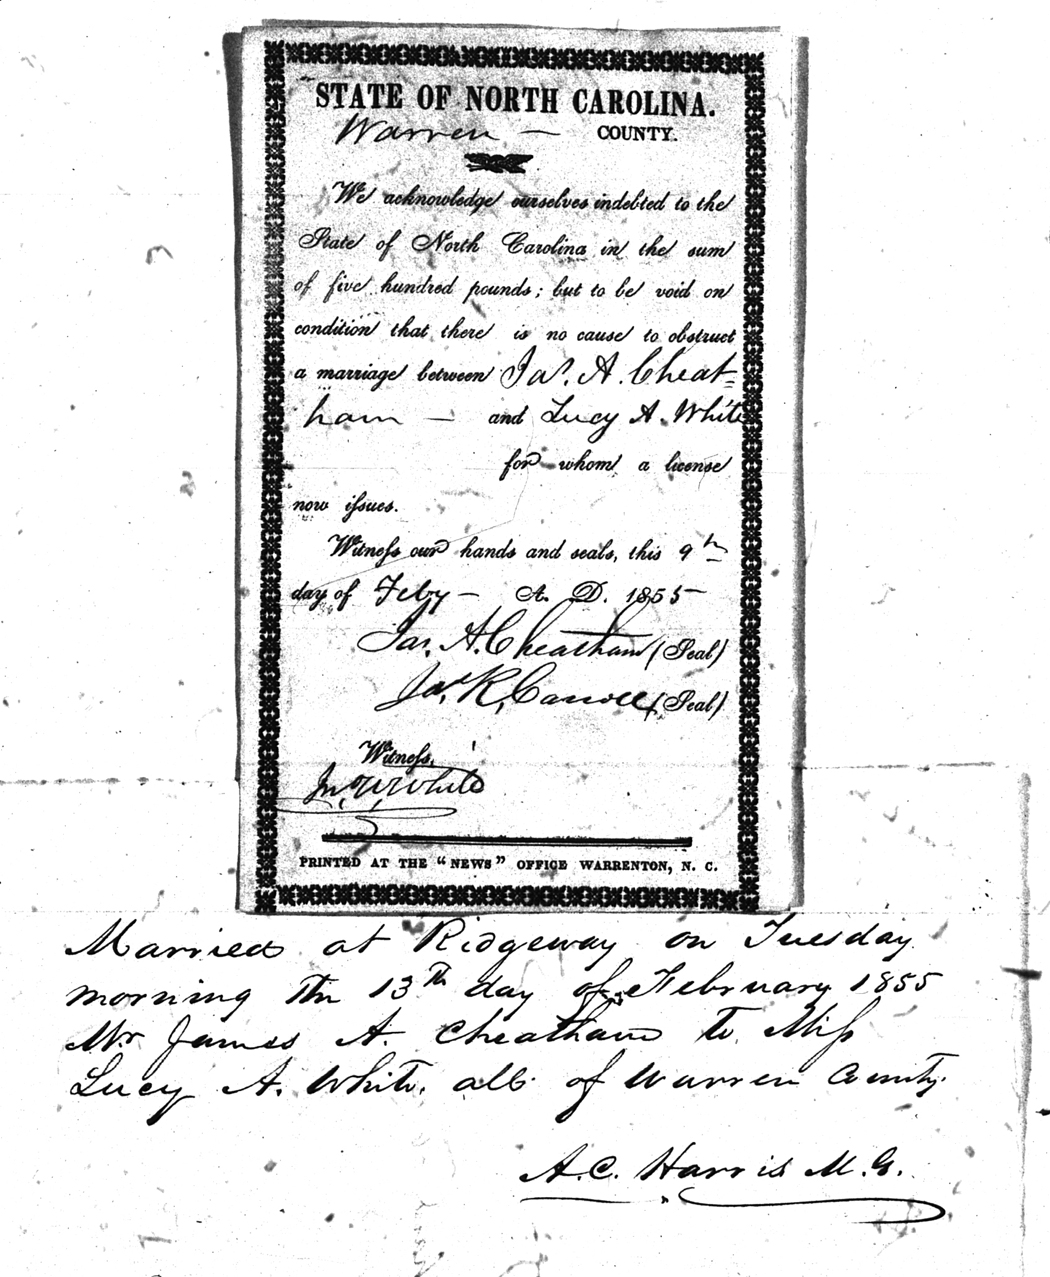 STATE OF NORTH CAROLINA.
Warren — COUNTY.
We acknowledge ourselves indebted to the
State of North Carolina in the sum
of five hundred pounds; but to be void on
condition that there is no cause to obstruct
a marriage between Jas. A. Cheat=
ham — and Lucy A. White
for whom a license
now issues.
Witness our hands and seals, this 9th
day of Feby — A. D. 1855
Jas. A. Cheatham (Seal)
Jas. R. Carroll (Seal)
Witness,
Jn. W. White
PRINTED AT THE "NEWS" OFFICE WARRENTON, N. C.
Married at Ridgeway on Tuesday
morning the 13th day of February 1855
Mr James A. Cheatham to Miss
Lucy A. White. all of Warren County.
A. C. Harris M. G.